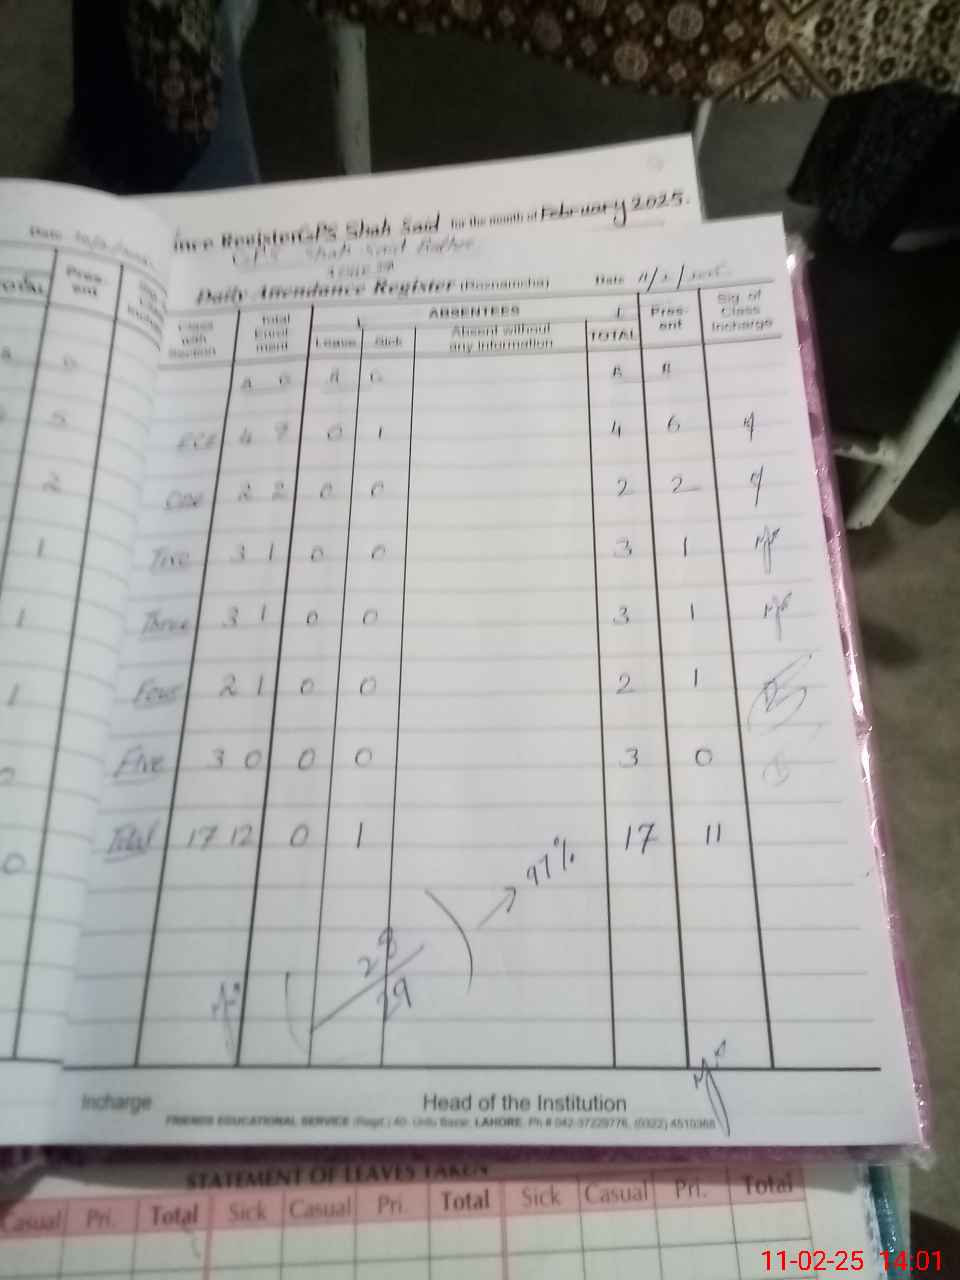 Register GPS Shah Said for the month of February 2025.
GPS Shah Said
Daily Attendance Register (Roznamcha) Date 11/2/2025
Class with Section Total Enrolment ABSENTEES Present Sig. of Class Incharge
Leave Sick Absent without any Information TOTAL
ECE 4 7 0 1 4 6
One 2 2 0 0 2 2
Two 3 1 0 0 3 1
Three 3 1 0 0 3 1
Four 2 1 0 0 2 1
Five 3 0 0 0 3 0
Total 17 12 0 1 17 11
28
29
97%
Incharge Head of the Institution
FRIENDS EDUCATIONAL SERVICE (Regd.) 40- Urdu Bazar, LAHORE. Ph # 042-37229776, (0322) 4510368
STATEMENT OF LEAVES TAKEN
Casual Pri. Total Sick Casual Pri. Total Sick Casual Pri. Total
11-02-25 14:01